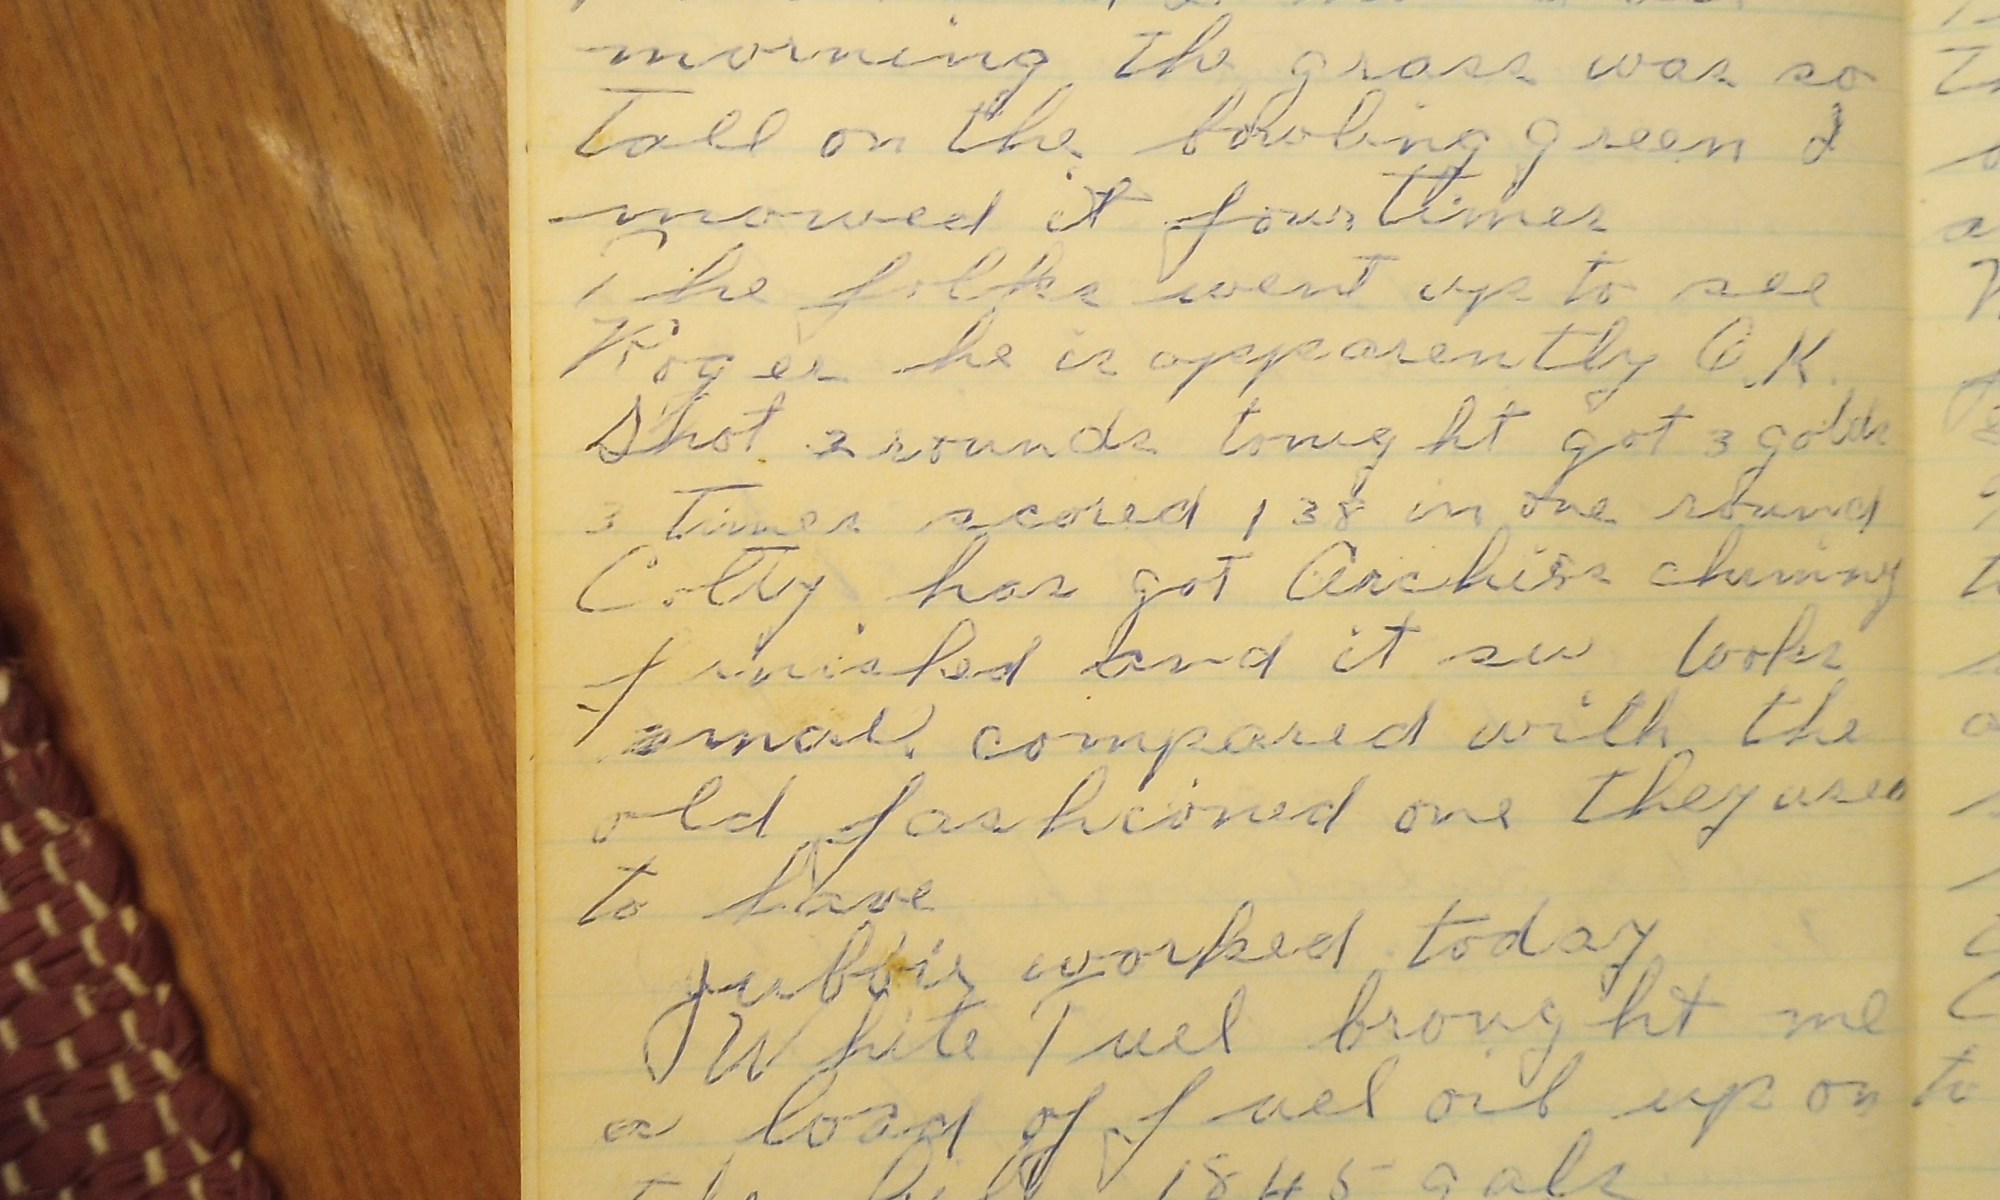 morning the grass was so
Tall on the bowling green I
mowed it four times
The folks went up to see
Roger he is apparently O.K.
Shot 2 rounds tonight got 3 golds
3 Times scored 138 in one round
Colty has got Archies chimny
finished and it sw looks
small compared with the
old fashioned one they used
to have
worked today
White Fuel brought me
a load of fuel oil up on
the hill 1845 gals